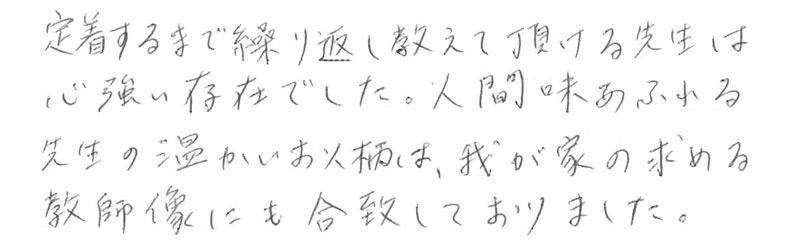 定着するまで繰り返し教えて頂ける先生は
心強い存在でした。人間味あふれる
先生の温かいお人柄は、我が家の求める
教師像にも合致しておりました。